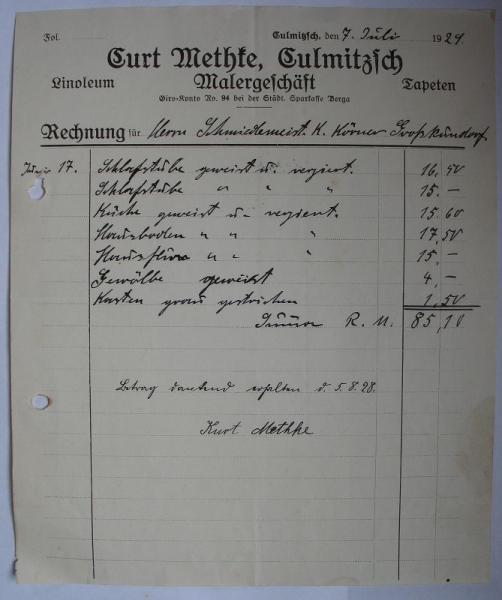 Fol.
Culmitzsch, den 7. Juli 1929.
Curt Methke, Culmitzsch
Linoleum Malergeschäft Tapeten
Giro-Konto No. 94 bei der Städt. Sparkasse Berga
Rechnung für Herrn Schmiedemeist. K. Körner Großkundorf
Juni 17. Schlafstube geweist u. verziert. 16,50
Schlafstube " " " 15.–
Küche geweist u. verziert. 15.60
Hausboden " " " 17,50
Hausflur " " " 15.–
Gewölbe geweist 4.–
Kasten grau gestrichen 1,50
Summa R. M. 85,10
Betrag dankend erhalten d. 5.8.28.
Kurt Methke